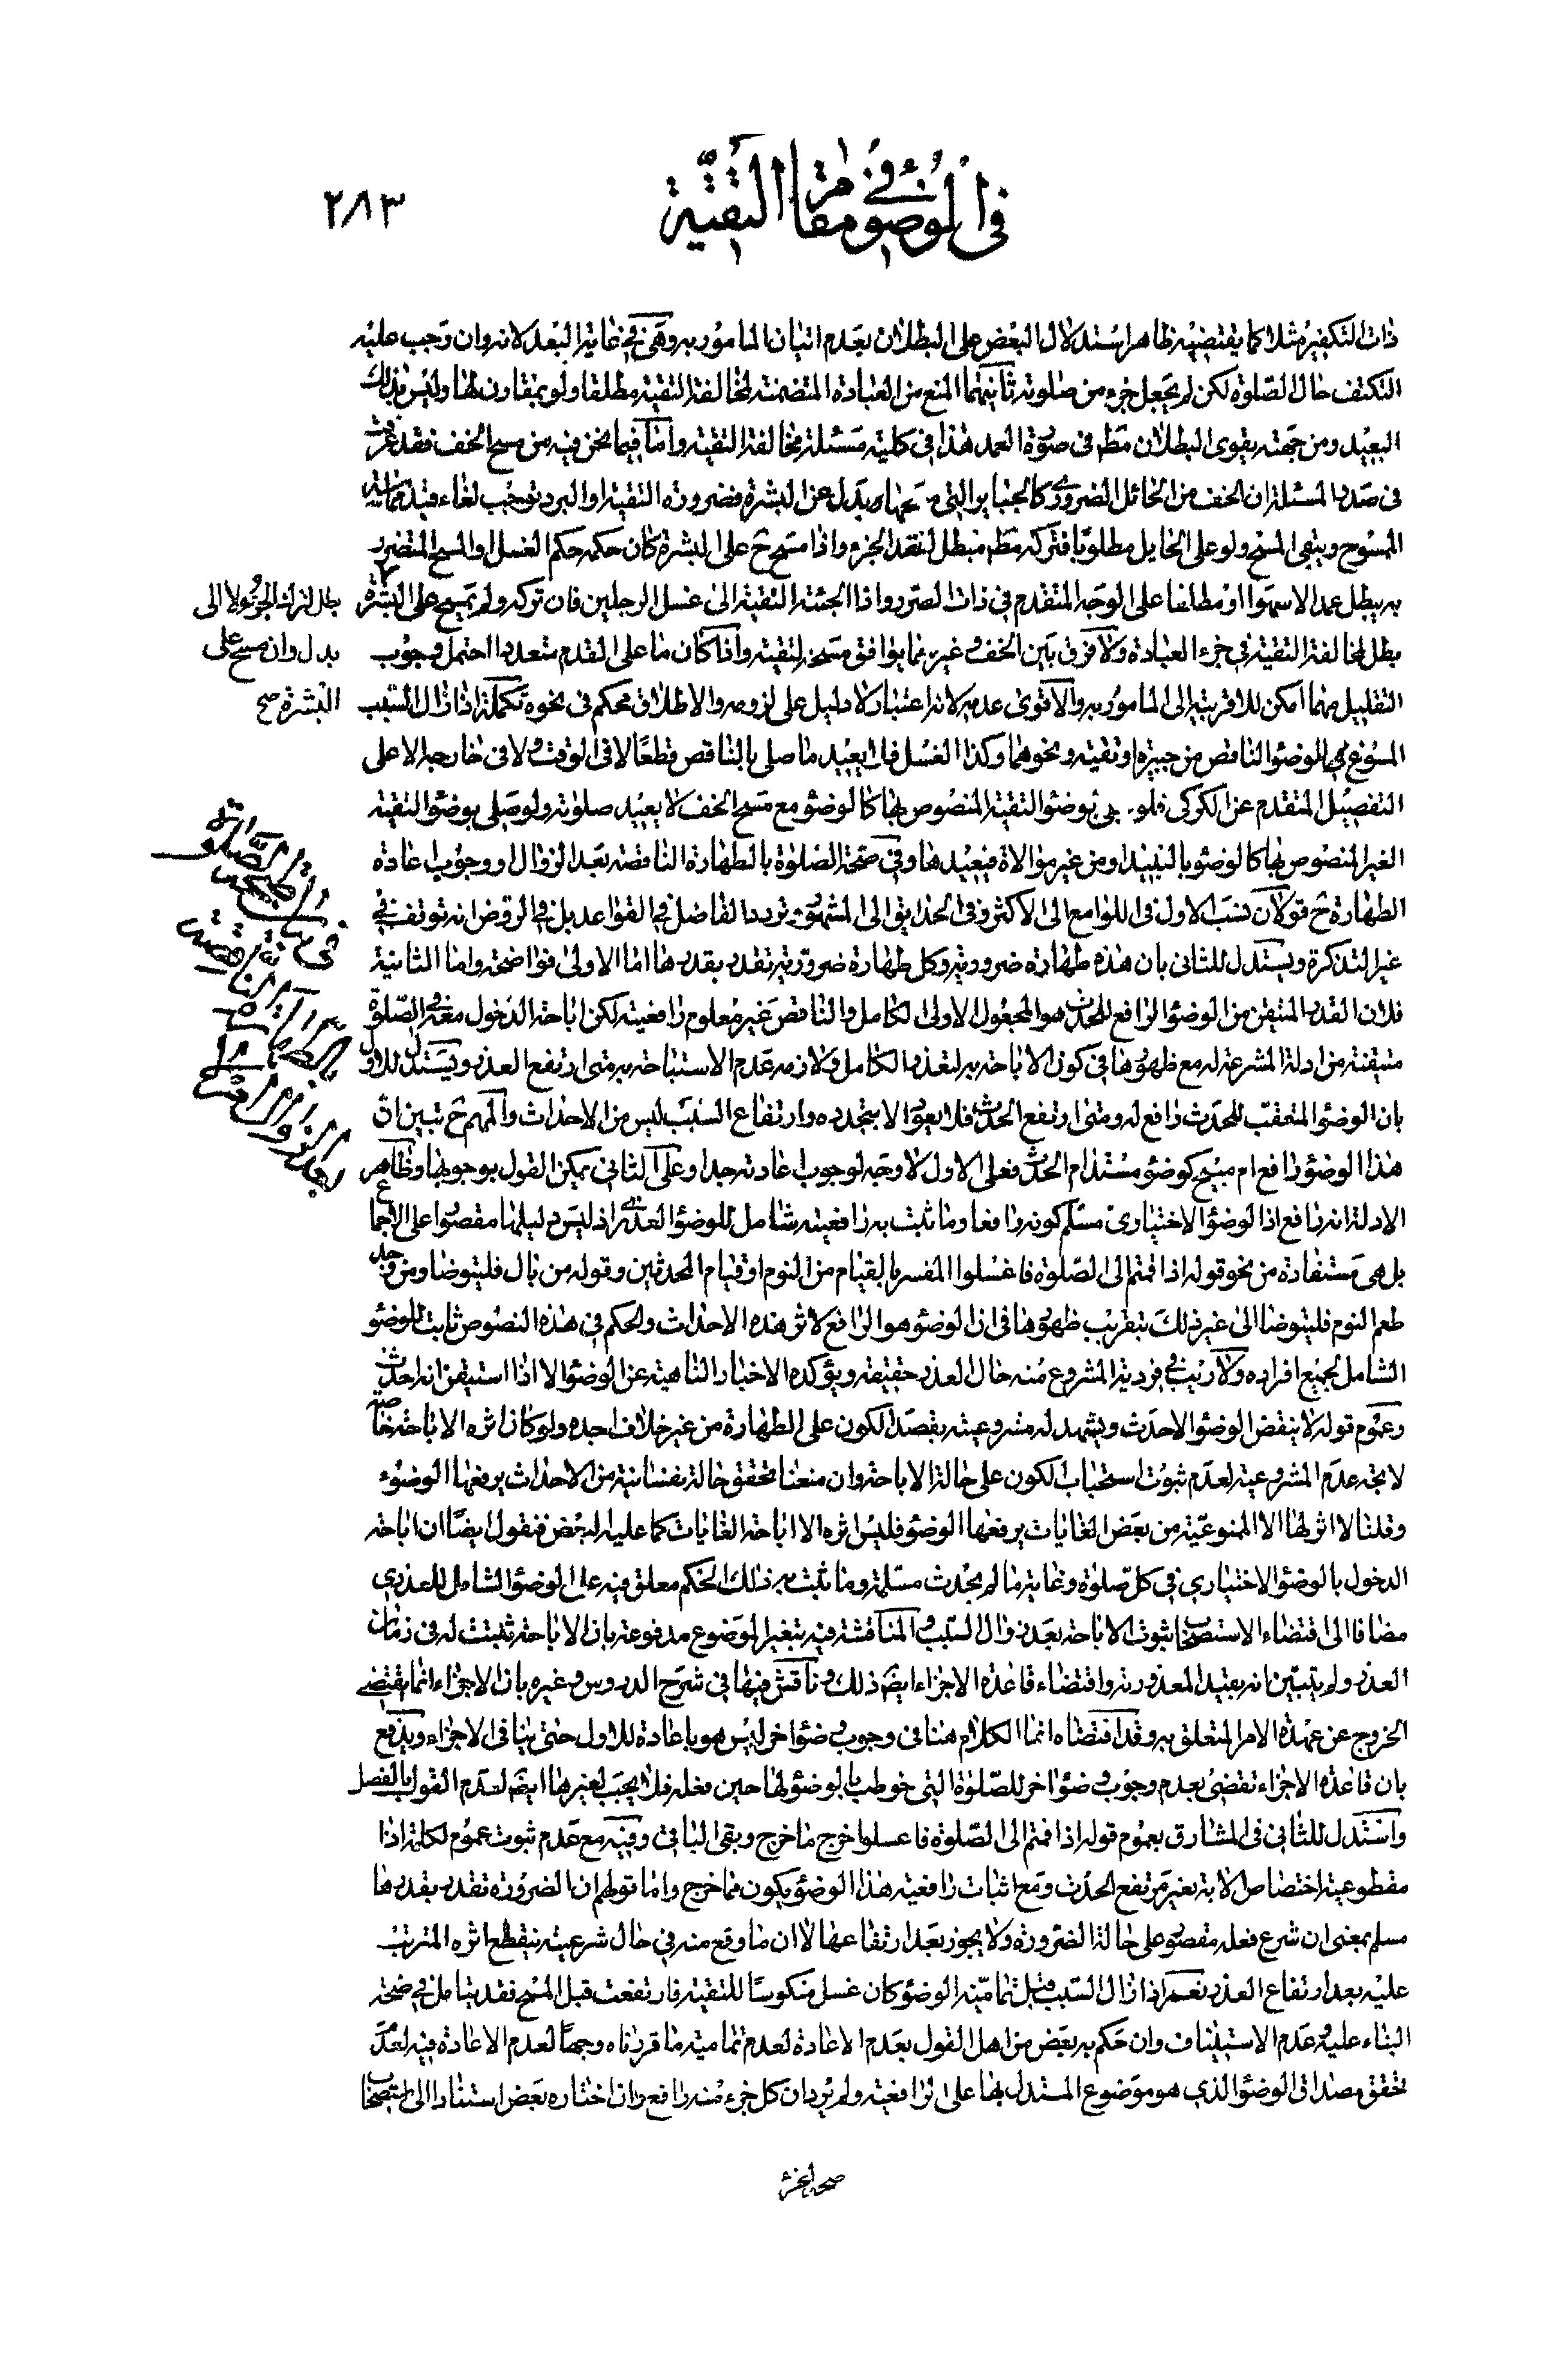 في الوضوء في مقام التقية
٢٨٣
ذات التكفير مثلا كما يقتضيه ظاهر استدلال البعض على البطلان بعدم اتيان المامور به وهى في غاية البعد لانه وان وجب عليه
التكتف حال الصلوة لكن لم يجعل جزء من صلوته ثانيهما المنع من العبادة المتضمنة لمخالفة التقية مطلقا ولو بمقارن لها وليس بذلك
البعيد ومن جهته يقوى البطلان مط في صورة العمد هذا في كلية مسئلة مخالفة التقية واما فيما نحن فيه من مسح الخف فقد عرفت
في صدر المسئلة ان الخف من الحائل الضرورى كالجبائر التي مسحها بدل عن البشرة فضرورة التقية او البرد توجب لغاء قيد مماسة
الممسوح ويبقى المسح ولو على الحايل مطلوبا فتركه مط مبطل لتفقد الجزء واذا مسح ح على البشرة كان حكمه حكم الغسل والمسح المتضرر
به يبطل عمدا لا سهوا او مطلقا على الوجه المتقدم في ذات الضرر واذا الجئته التقية الى غسل الرجلين فان تركه ولم يمسح على البشرة
بطل لترك الجزء لا الى
بدل وان مسح على
البشرة صح
بطل لمخالفة التقية في جزء العبادة ولا فرق بين الخف وغيره مما يوافق مسحه لتقية واذا كان ما على القدم متعددا احتمل وجوب
التقليل مهما امكن للاقربية الى المامور به والاقوى عدمه لانه اعتبار لا دليل على لزومه والاطلاق محكم في نحوه تكملة اذا زال السبب
المسوغ للوضوء الناقص من جبيرة او تقية ونحوهما وكذا الغسل فلا يعيد ما صلى بالناقص قطعا لا في الوقت ولا في خارجه الا على
التفصيل المتقدم عن الكركى فلو بوضوء التقية المنصوص بها كالوضوء مع مسح الخف لا يعيد صلوته ولو صلى بوضوء التقية
الغير المنصوص بها كالوضوء بالنبيذ او من غير موالاة فيعيدها وفي صحة الصلوة بالطهارة الناقصة بعد الزوال او وجوب اعادة
الطهارة ح قولان نسب الاول في اللوامع الى الاكثر وفي الحدايق الى المشهور وتردد الفاضل في القواعد بل في الروض انه توقف في
غير التذكرة ويستدل للثانى بان هذه طهارة ضرورية وكل طهارة ضرورية تقدر بقدرها اما الاولى فواضحة واما الثانية
فلان القدر المتيقن من الوضوء الرافع للحدث هو المجعول الاولى الكامل والناقص غير معلوم رافعيته لكن اباحة الدخول معه في الصلوة
متيقنة من ادلة المشرعة له مع ظهورها في كون الاباحة به لتعذر الكامل ولازمه عدم الاستباحة به متى ارتفع العذر ويستدل للاول
بان الوضوء المتعقب للحدث رافع له ومتى ارتفع الحدث فلا يعود الا بتجدده وارتفاع السبب ليس من الاحداث والمهم ح تبين ان
هذا الوضوء رافع ام مبيح كوضوء مستدام الحدث فعلى الاول لا وجه لوجوب اعادته جدا وعلى الثاني يمكن القول بوجوبها وظاهر
الادلة انه رافع اذ الوضوء الاختيارى مسلم كونه رافعا وما ثبت به رافعيته شامل للوضوء العذرى اذ ليس دليلها مقصورا على الاجماع
بل هى مستفادة من نحو قوله اذا قمتم الى الصلوة فاغسلوا المفسر بالقيام من النوم او قيام المحدثين وقوله من بال فليتوضا ومن وجد
طعم النوم فليتوضا الى غير ذلك بتقريب ظهورها في ان الوضوء هو الرافع لاثر هذه الاحداث والحكم في هذه النصوص ثابت للوضوء
الشامل لجميع افراده ولا ريب في فردية المشروع منه حال العذر حقيقة ويؤكده الاخبار الناهية عن الوضوء الا اذا استيقن انه احدث
وعموم قوله لا ينقض الوضوء الا حدث ويشهد له مشروعيته بقصد الكون على الطهارة من غير خلاف اجده ولو كان اثره الاباحة خاصة
لا تجه عدم المشروعية لعدم ثبوت استحباب الكون على حالة الاباحة وان منعنا تحقق حالة نفسانية من الاحداث يرفعها الوضوء
وقلنا لا اثر لها الا الممنوعية من بعض الغايات يرفعها الوضوء فليس اثره الا اباحة الغايات كما عليه البعض فنقول ايضا ان اباحة
الدخول بالوضوء الاختياري في كل صلوة وغاية ما لم يحدث مسلمة وما ثبت به ذلك الحكم معلق فيه على الوضوء الشامل للعذرى
مضافا الى اقتضاء الاستصحاب ثبوت الاباحة بعد زوال السبب والمناقشة فيه بتغير الموضوع مدفوعة بان الاباحة تثبتت له في زمان
العذر ولم يتبين انه بقيد المعذورية واقتضاء قاعدة الاجزاء ايضا ذلك وناقش فيها في شرح الدروس وغيره بان الاجزاء انما تقتضى
الخروج عن عهدة الامر المتعلق به وقد اقتضاه انما الكلام هنا في وجوب وضوء اخر ليس هو باعادة للاول حتى ينافى الاجزاء ويدفع
بان قاعدة الاجزاء تقضى بعدم وجوب وضوء اخر للصلوة التى خوطب بالوضوء لها حين فعله فلا يجب لغيرها ايضا لعدم القول بالفصل
واستدل للثانى في المشارق بعموم قوله اذا قمتم الى الصلوة فاغسلوا خرج ما خرج وبقى الباقى وفيه مع عدم ثبوت عموم لكلمة اذا
مقطوعية اختصاص الاية بغير مرتفع الحدث ومع اثبات رافعية هذا الوضوء يكون مما خرج واما قولهم ان الضرورة تقدر بقدرها
مسلم بمعنى ان شرع فعله مقصور على حالة الضرورة ولا يجوز بعد ارتفاعها لا ان ما وقع منه في حال شرعيته ينقطع اثره المترتب
عليه بعد ارتفاع العذر نعم اذا زال السبب قبل تمامية الوضوء كان غسل منكوسا للتقية فارتفعت قبل المسح فقد يتامل في صحة
البناء عليه وعدم الاستيناف وان حكم به بعض من اهل القول بعدم الاعادة لعدم تمامية ما قررناه وجها لعدم الاعادة فيه لعدم
تحقق مصداق الوضوء الذى هو موضوع المستدل بها على الرافعية ولم يرد ان كل جزء منه رافع وان اختاره بعض استنادا الى استصحاب
صحة الجزء